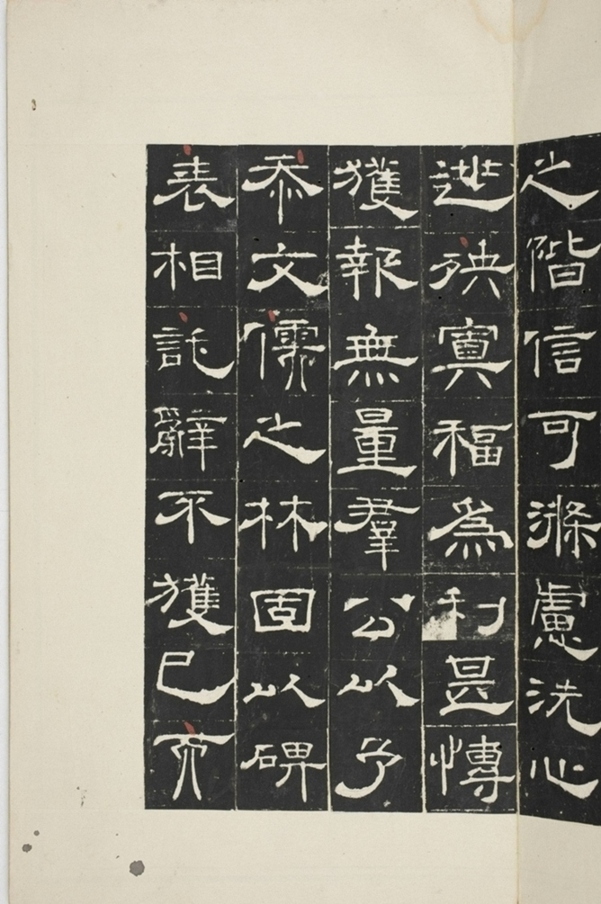 之階信可滌慮洗心
逃殃冥福爲利甚愽
獲報無量羣公以予
忝文儒之林固以碑
表相託辭不獲已而